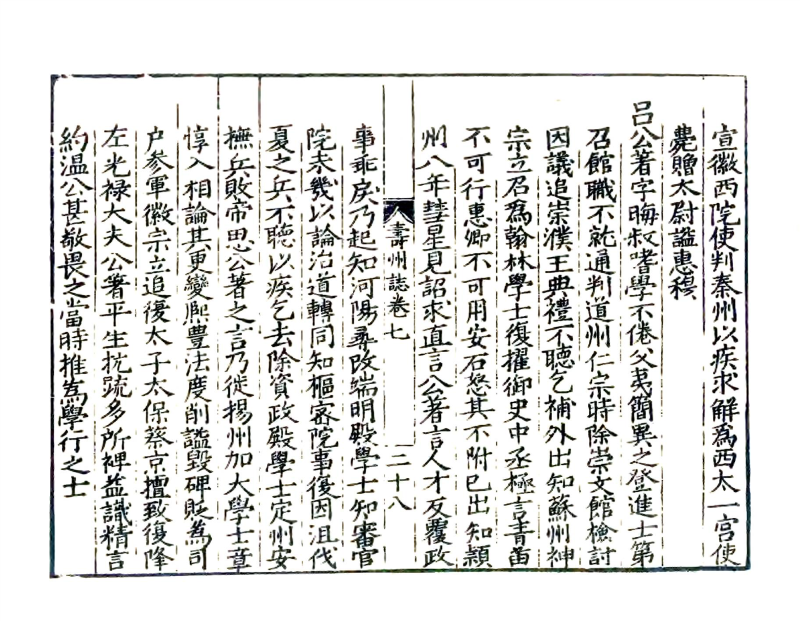 宣徽西院使判秦州以疾求解爲西太一宮使
薨贈太尉謚惠穆
呂公著字晦叔嗜學不倦父夷簡異之登進士第
召館職不就通判道州仁宗時除崇文館檢討
因議追崇濮王典禮不聽乞補外出知蘇州神
宗立召爲翰林學士復擢御史中丞極言青苗
不可行惠卿不可用安石怒其不附已出知潁
州八年彗星見詔求直言公著言人才反覆政
壽州誌卷七
二十八
事乖戾乃起知河陽尋改端明殿學士知審官
院未幾以論治道轉同知樞密院事後因沮伐
夏之兵不聽以疾乞去除資政殿學士定州安
撫兵敗帝思公著之言乃徙揚州加大學士章
惇入相論其更變熙豊法度削謚毀碑貶爲司
户參軍徽宗立追復太子太保蔡京擅致復降
左光禄大夫公著平生抗疏多所裨益識精言
約温公甚敬畏之當時推爲學行之士